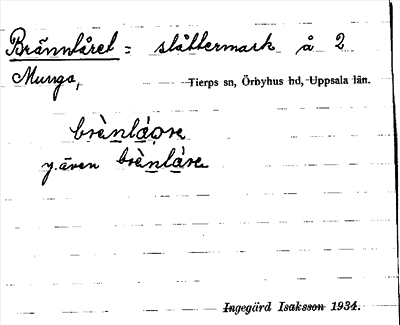 Brännlåret = slåttermark å 2
Munga, Tierps sn, Örbyhus hd, Uppsala län.
brènlåɷre
y. även brènlåre
Ingegärd Isaksson 1934.